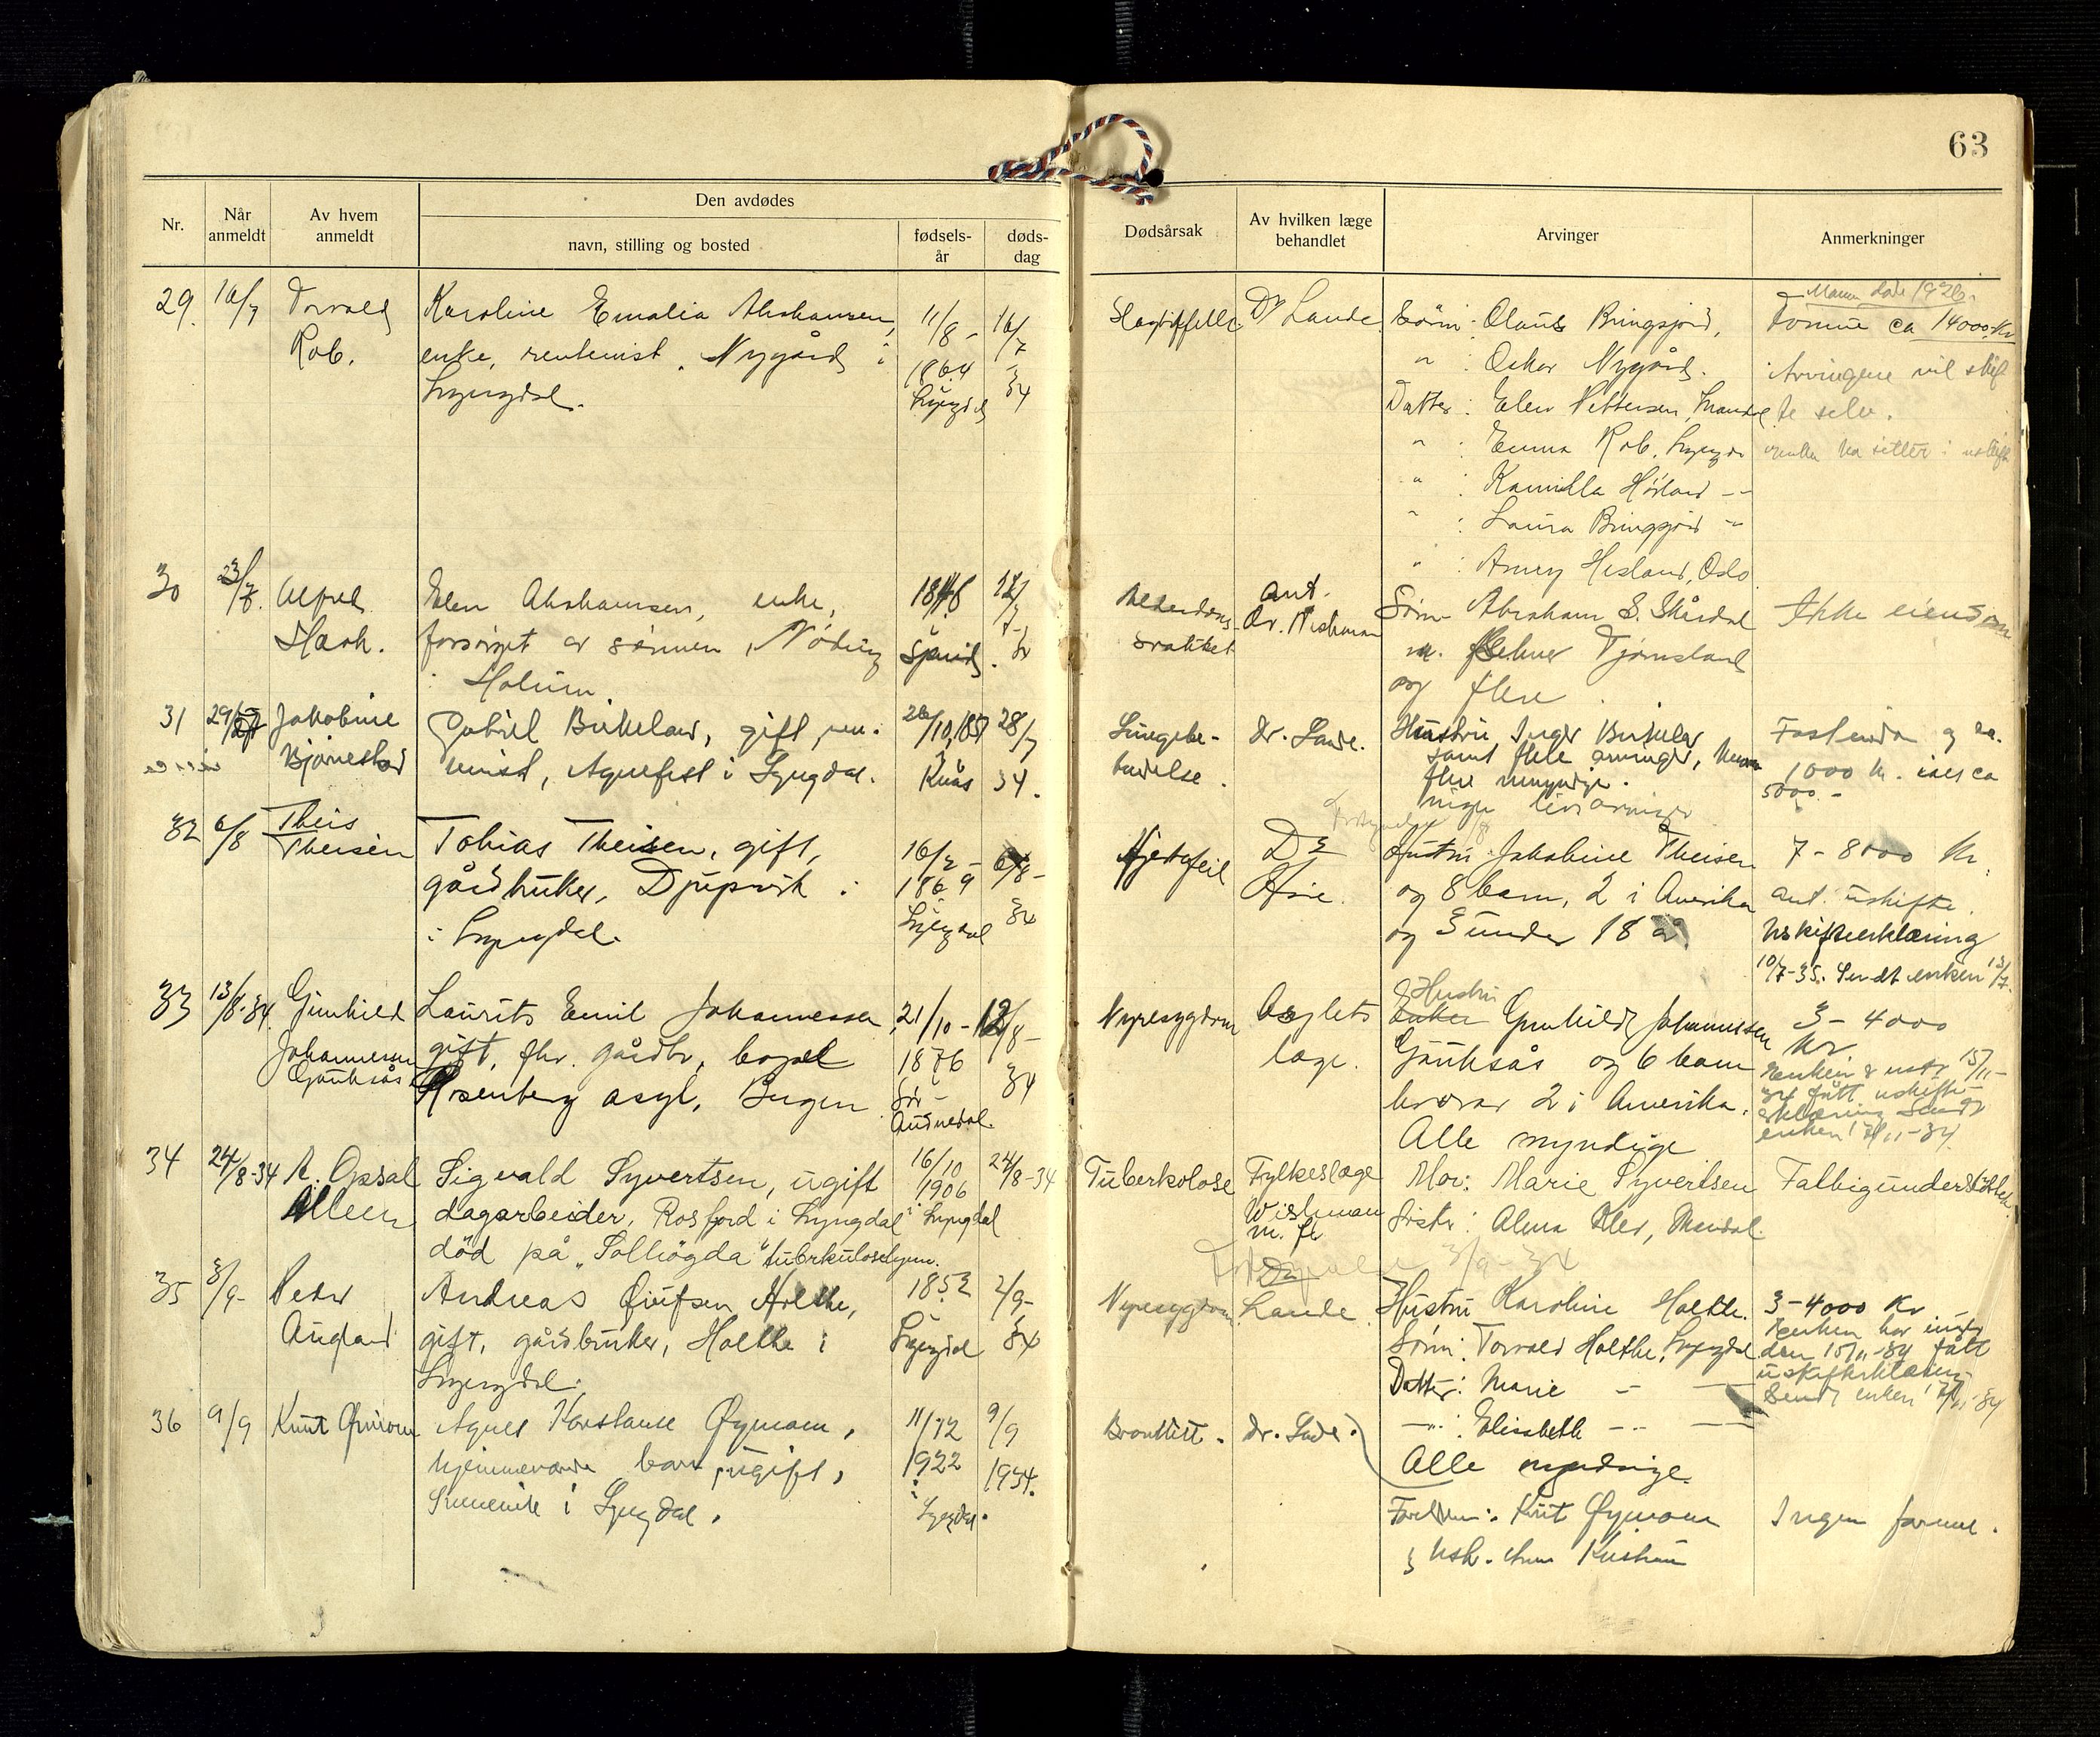 63
Nr.
Når anmeldt
Av hvem anmeldt
Den avdødes
navn, stilling og bosted
fødsels-år
døds-dag
Dødsårsak
Av hvilken læge behandlet
Arvinger
Anmerkninger
29. 16/7 Torvald Rob.
Karoline Emalie Abrahamsen,
enke, rentenist, Nygård i
Lyngdal.
11/8 - 1864 Lyngdal
16/7 - 34
Slagtilfelle
Dr Lande
Sønn: Olaus Bringsjord,
" : Oskar Nygård.
Datter: Elen Pettersen, Mandal
" : Emma Rob, Lyngdal
" : Kamilla Hörland -"-
" : Laura Bringsjord -"-
" : Anny Hesland, Oslo
Mann død 1926.
Formue ca 14000 Kr
Arvingene vil skif
te selv.
30 23/7. Alfred Haah.
Elen Abrahamsen, enke,
forsørget av sønnen, Nöding
i Holum.
1848 Spind
Alderdoms
svakhet
ant.
Dr. Wishman
Sønn Abraham S. Skårdal
m. Tjomsland
og flere.
Ikke eiendom
31 29/7 Jakobine Bjørnestad
Gabriel Birkeland, gift, ren-
tenist, Agnefest i Lyngdal.
26/10, 1857 Kvås
28/7 34.
Lungebe-
tendelse.
dr. Lande.
Hustru Inger Birkeland
samt flere arvinger, hvorav
flere umyndige.
ingen livsarvinger
Fast eiendom og ca.
1000 kr. ialt ca
5000.-
32 6/8 Theis Theisen
Tobias Theisen, gift,
gårdbruker, Djupvik i
i Lyngdal.
16/2 - 1869 Lyngdal
6/8 - 34
Hjertefeil
Dr
Hustru Jakobine Theisen
og 8 barn, 2 i Amerika
og 3 under 18 år
7 - 8000 Kr
ant. uskifte.
Uskifteerklæring
10/7-35. Sendt enken 13/7.
33 13/8-34. Gunhild Johannessen Gauksås
Laurits Emil Johannessen
gift, fhv. gårdbr, bopæl
Rosenberg asyl, Bergen
21/10 - 1876 Sør- Audnedal.
12/8 - 34
Nyresygdom
Asylets
læge.
Hustru
Enken Gunhild Johannessen
Gauksås og 6 barn
hvorav 2 i Amerika.
Alle myndige
3 - 4000
kr
Enken 15/11-
34 fått uskifte-
erklæring Sendt
enken 17/11-34
34 24/8-34 A. Opsal Alleen
Sigvald Syvertsen, ugift
dagarbeider, Rosfjord i Lyngdal
død på "Solhögda" tuberkulosehjem.
16/10 1906 i Lyngdal
24/8-34
Tuberkolose
Fylkeslæge
Wishman
m. fl
Mor: Marie Syvertsen
Søster: Alma Mandal.
Fattigunderstøttet.
35 3/9- Peder Augland
Andreas Holthe,
gift, gårdbruker, Holthe i
Lyngdal.
1852 Lyngdal
2/9- 34
3/9-34
Nyresygdom
Lande
Hustru Karoline Holthe.
Sønn: Torvald Holthe, Lyngdal
Datter: Marie - -
-"- : Elisabeth -"- -
Alle myndige.
3-4000 Kr
Enken har
den 15/11-34 fått
uskifteerklæring
Sendt enken 17/11-34
36 9/9 Knut Øymoen
Agnes Konstanse Øymoen,
hjemmeværende barn, ugift,
i Lyngdal.
11/12 1922 i Lyngdal.
9/9 1934.
Bronkitt.
dr. Lande.
Foreldre: Knut Øymoen
g hsk.
Ingen formue.